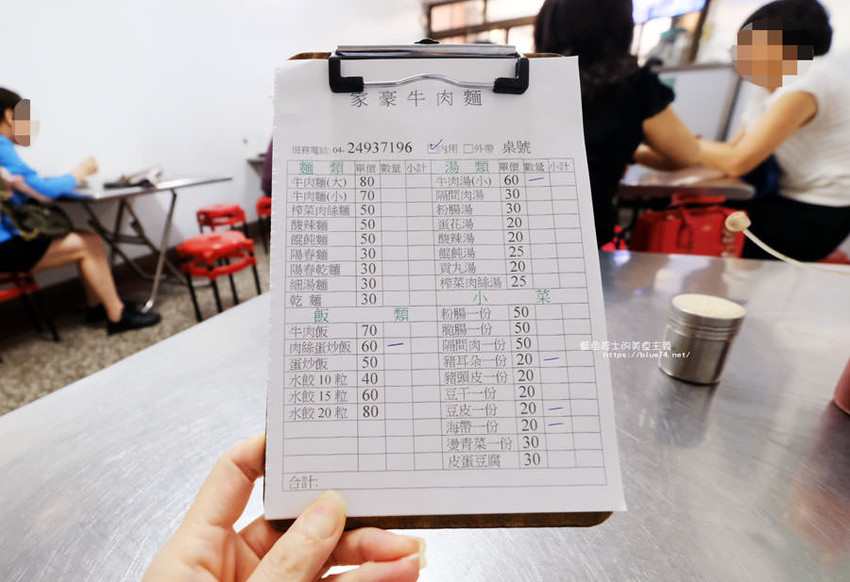 家豪牛肉麵
服務電話: 04- 24937196 ☑內用 □外帶 桌號
麵 類 單價 數量 小計 湯 類 單價 數量 小計
牛肉麵(大) 80 牛肉湯(小) 60 一
牛肉麵(小) 70 隔間肉湯 30
榨菜肉絲麵 50 粉腸湯 30
酸辣麵 50 蛋花湯 20
餛飩麵 50 酸辣湯 20
陽春麵 30 餛飩湯 25
陽春乾麵 30 貢丸湯 20
細湯麵 30 榨菜肉絲湯 25
乾 麵 30 小 菜
飯 類 粉腸一份 50
牛肉飯 70 脆腸一份 50
肉絲蛋炒飯 60 一 隔間肉一份 50
蛋炒飯 50 豬耳朵一份 20 一
水餃 10 粒 40 豬頭皮一份 20
水餃 15 粒 60 豆干一份 20
水餃 20 粒 80 豆皮一份 20 一
海帶一份 20 一
燙青菜一份 30
皮蛋豆腐 30
合計:
https://blue74.net/